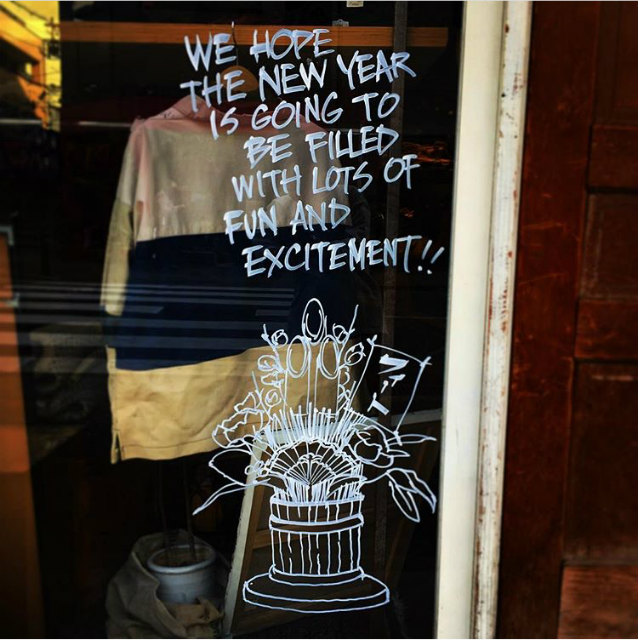 WE HOPE
THE NEW YEAR
IS GOING TO
BE FILLED
WITH LOTS OF
FUN AND
EXCITEMENT!!